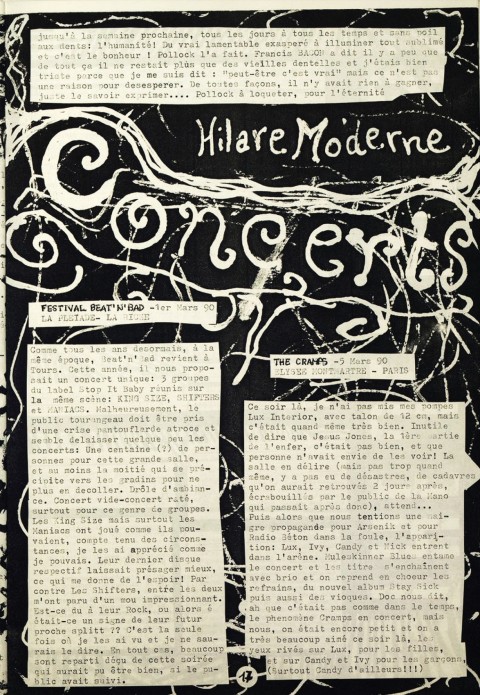 jusqu'à la semaine prochaine, tous les jours à tous les temps et sans poil
aux dents: l'humanité! Du vrai lamentable exaspéré à illuminer tout sublimé
et c'est le bonheur ! Pollock l'a fait. Francis BACON a dit il y a peu que
de tout ça il ne restait plus que des vieilles dentelles et j'étais bien
triste parce que je me suis dit : "peut-être c'est vrai" mais ce n'est pas
une raison pour desesperer. De toutes façons, il n'y avait rien à gagner,
juste le savoir exprimer.... Pollock à loqueter, pour l'éternité
Hilare Moderne
Concerts
FESTIVAL BEAT'N'BAD -1er Mars 90
LA PLEIADE- LA RICHE
Comme tous les ans desormais, à la
même époque, Beat'n'Bad revient à
Tours. Cette année, il nous propo-
sait un concert unique: 3 groupes
du label Stop It Baby réunis sur
la même scène: KING SIZE, SHIFTERS
et MANIACS. Malheureusement, le
public tourangeau doit être pris
d'une crise pantouflarde atroce et
semble delaisser quelque peu les
concerts: Une centaine (?) de per-
sonnes pour cette grande salle,
et au moins la moitié qui se pré-
cipite vers les gradins pour ne
plus en decoller. Drôle d'ambian-
ce. Concert vide-concert raté,
surtout pour ce genre de groupes.
Les King Size mais surtout les
Maniacs ont joué comme ils pou-
vaient, compte tenu des circons-
tances, je les ai apprécié comme
je pouvais. Leur dernier disque
respectif laissait présager mieux,
ce qui me donne de l'espoir! Par
contre Les Shifters, entre les deux
m'ont paru d'un mou impressionnant.
Est-ce du à leur Rock, ou alors é
était-ce un signe de leur futur
proche split ?? C'est la seule
fois où je les ai vu et je ne sau-
rais le dire. En tout cas, beaucoup
sont reparti déçu de cette soirée
qui aurait pu être bien, si le pu-
blic avait suivi.
THE CRAMPS -5 Mars 90
ELYSEE MONTMARTRE - PARIS
Ce soir là, je n'ai pas mis mes pompes
Lux Interior, avec talon de 12 cm, mais
c'était quand même très bien. Inutile
de dire que Jesus Jones, la 1ère partie
de l'enfer, c'était pas bien, et que
personne n'avait envie de les voir! La
salle en délire (mais pas trop quand
même, y a pas eu de désastres, de cadavres
qu'on aurait retrouvés 2 jours après,
écrabouillés par le public de la Mano
qui passait après donc), attend...
Puis alors que nous tentions une mai-
gre propagande pour Arsenik et pour
Radio Béton dans la foule, l'appari-
tion: Lux, Ivy, Candy et Nick entrent
dans l'arène. Muleskinner Blues entame
le concert et les titres s'enchaînent
avec brio et on reprend en choeur les
refrains, du nouvel album Stay Sick
puis aussi des vioques. Doc nous dit,
ah que c'était pas comme dans le temps,
le phenomène Cramps en concert, mais
nous, on était encore petit et on a
très beaucoup aimé ce soir là, les
yeux rivés sur Lux, pour les filles,
et sur Candy et Ivy pour les garçons,
(Surtout Candy d'ailleurs!!!)
17